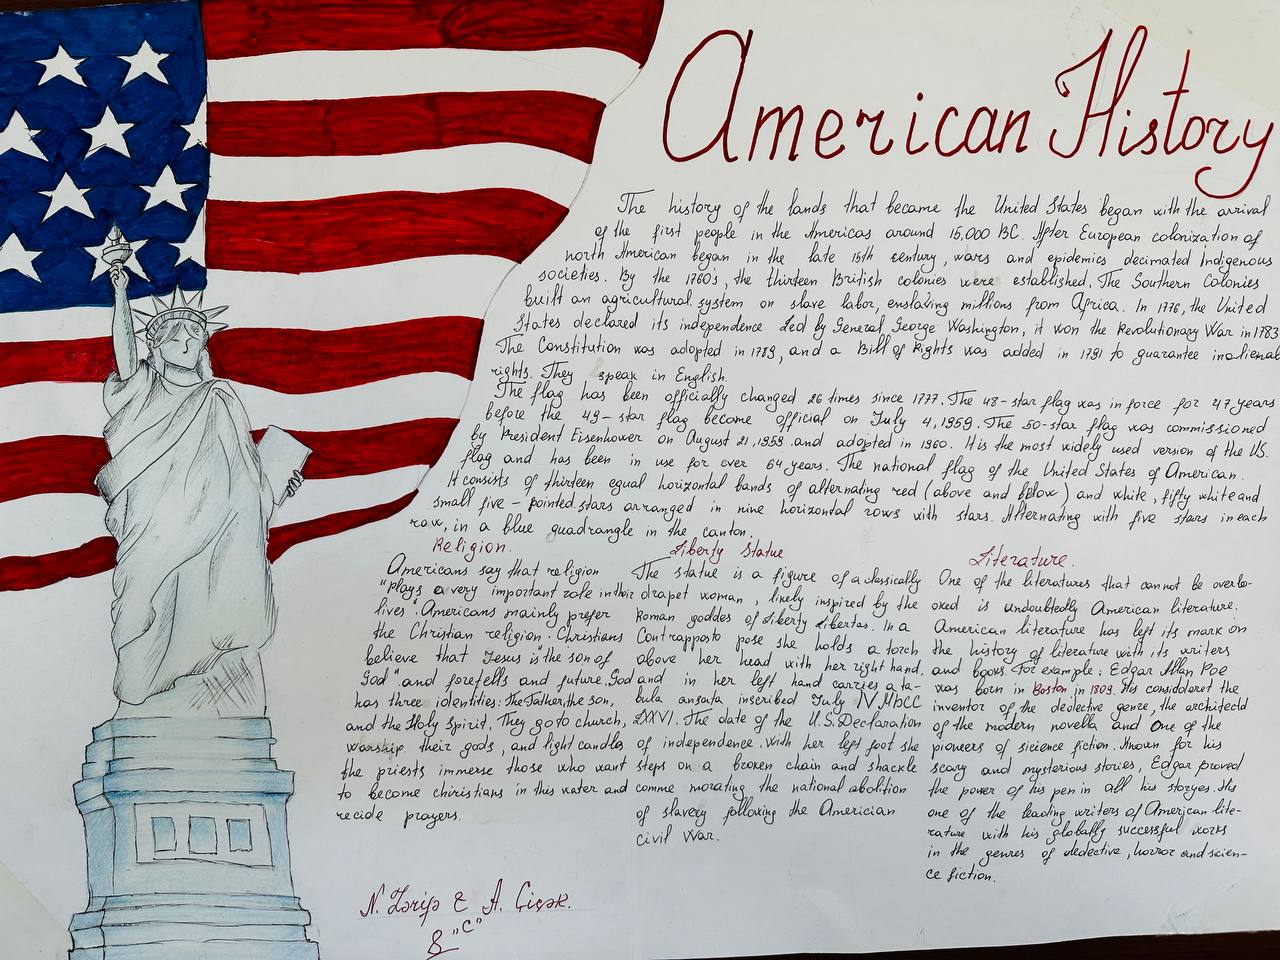 American History
The history of the lands that became the United States began with the arrival
of the first people in the Americas around 15,000 BC. After European colonization of
north American began in the late 15th century, wars and epidemics decimated Indigenous
societies. By the 1760's, the thirteen British colonies were established. The Southern Colonies
built an agricultural system on slave labor, enslaving millions from Africa. In 1776, the United
States declared its independence Led by General George Washington, it won the Revolutionary War in 1783
The Constitution was adopted in 1789, and a Bill of Rights was added in 1791 to guarantee inalienab
rights. They speak in English.
The flag has been officially changed 26 times since 1777. The 48-star flag was in force for 47 years
before the 49-star flag became official on July 4, 1959. The 50-star flag was commissioned
by President Eisenhower on August 21, 1959 and adopted in 1960. It is the most widely used version of the US.
flag and has been in use for over 64 years. The national flag of the United States of American.
It consists of thirteen equal horizontal bands of alternating red (above and below) and white, fifty white and
small five-pointed stars arranged in nine horizontal rows with stars. Alternating with five stars in each
row, in a blue quadrangle in the canton.
Religion.
Americans say that religion
"plays a very important role in their
lives". Americans mainly prefer
the Christian religion. Christians
believe that Jesus is "the son of
God" and foretells and future. God
has three identities: the Father, the son,
and the Holy Spirit. They go to church,
worship their gods, and light candles
the priests immerse those who want
to become chiristians in this water and
recide prayers.
Liberty Statue
The statue is a figure of a classically
drapet woman, likely inspired by the
Roman goddes of Liberty Libertas. In a
Contrapposto pose she holds a torch
above her head with her right hand,
and in her left hand carries a ta-
bula ansata inscribed July IV MDCC
LXXVI. The date of the U.S. Declaration
of independence. With her left foot she
steps on a broken chain and shackle
comme morating the national abolition
of slavery following the Americian
civil War.
Literature.
One of the literatures that cannot be overlo-
oked is undoubtedly American literature.
American literature has left its mark on
the history of literature with its writers
and books. For example: Edgar Allan Poe
was born in Boston in 1809. His consideret the
inventor of the dedective genre, the architecld
of the modern novella and One of the
pioneers of sicience fiction. Known for his
scary and mysterious stories, Edgar proved
the power of his pen in all his storyes. His
one of the leading writers of American lite-
rature with his globally successful works
in the genres of dedective, horror and scien-
ce fiction.
N. Zərifə & A. Çiçək.
8 "C"